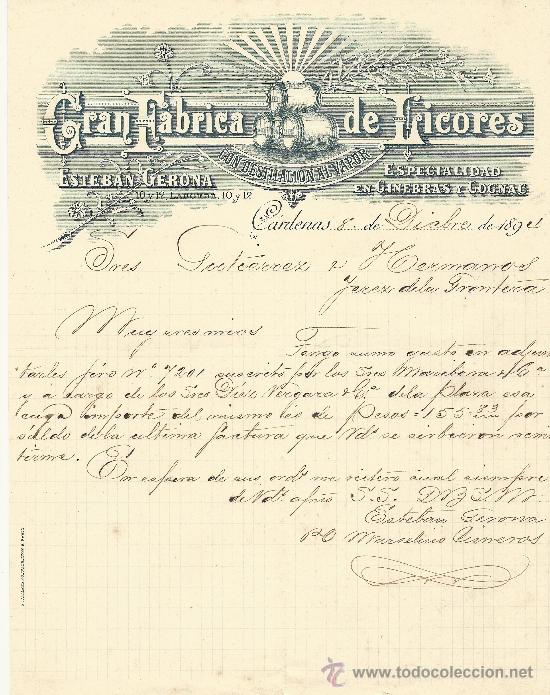 Gran Fábrica de Licores
CON DESTILACION AL VAPOR
ESTEBAN GERONA
ESPECIALIDAD
EN GINEBRAS Y COGNAC
10 y 12, LABORDA, 10 y 12
Cárdenas, 8 de Dicbre de 189
Sres Gutierrez e Hermanos
Jerez de la Frontera
Muy sres mios
Tengo sumo gusto en adjun
tarles jiro Nº 7201 suscrito por los Sres Maribona & Cª
y a cargo de los Sres Diez Vergara & Cª de la plaza esa
cuyo importe del mismo es de Pesos = 155 por
saldo de la ultima factura que Vds se sirbieron remi
tirme.
En espera de sus ordes me reitero cual siempre
de Vds afmo S.S. Q B S M
Esteban Girona
PO Marcelino
todocoleccion
www.todocoleccion.net